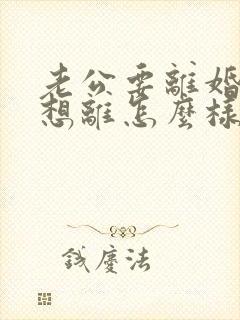 老公要離婚
想離怎麼樣
錢慶法